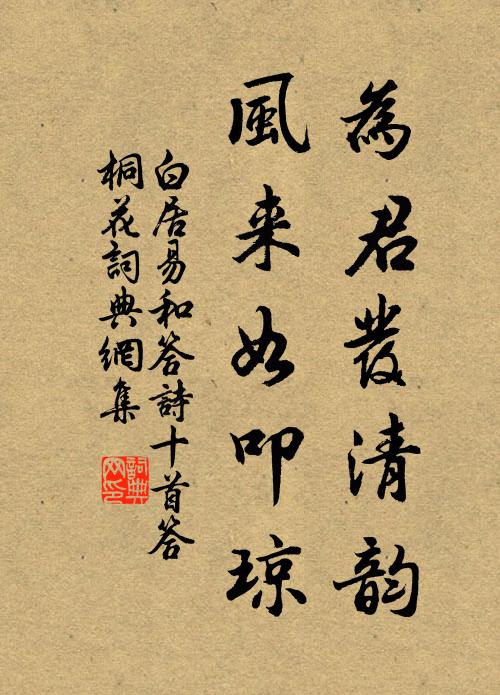 為君發清韵
風来如叩琼
白居易和答詩十首答
桐花詞典網集
詞典网印